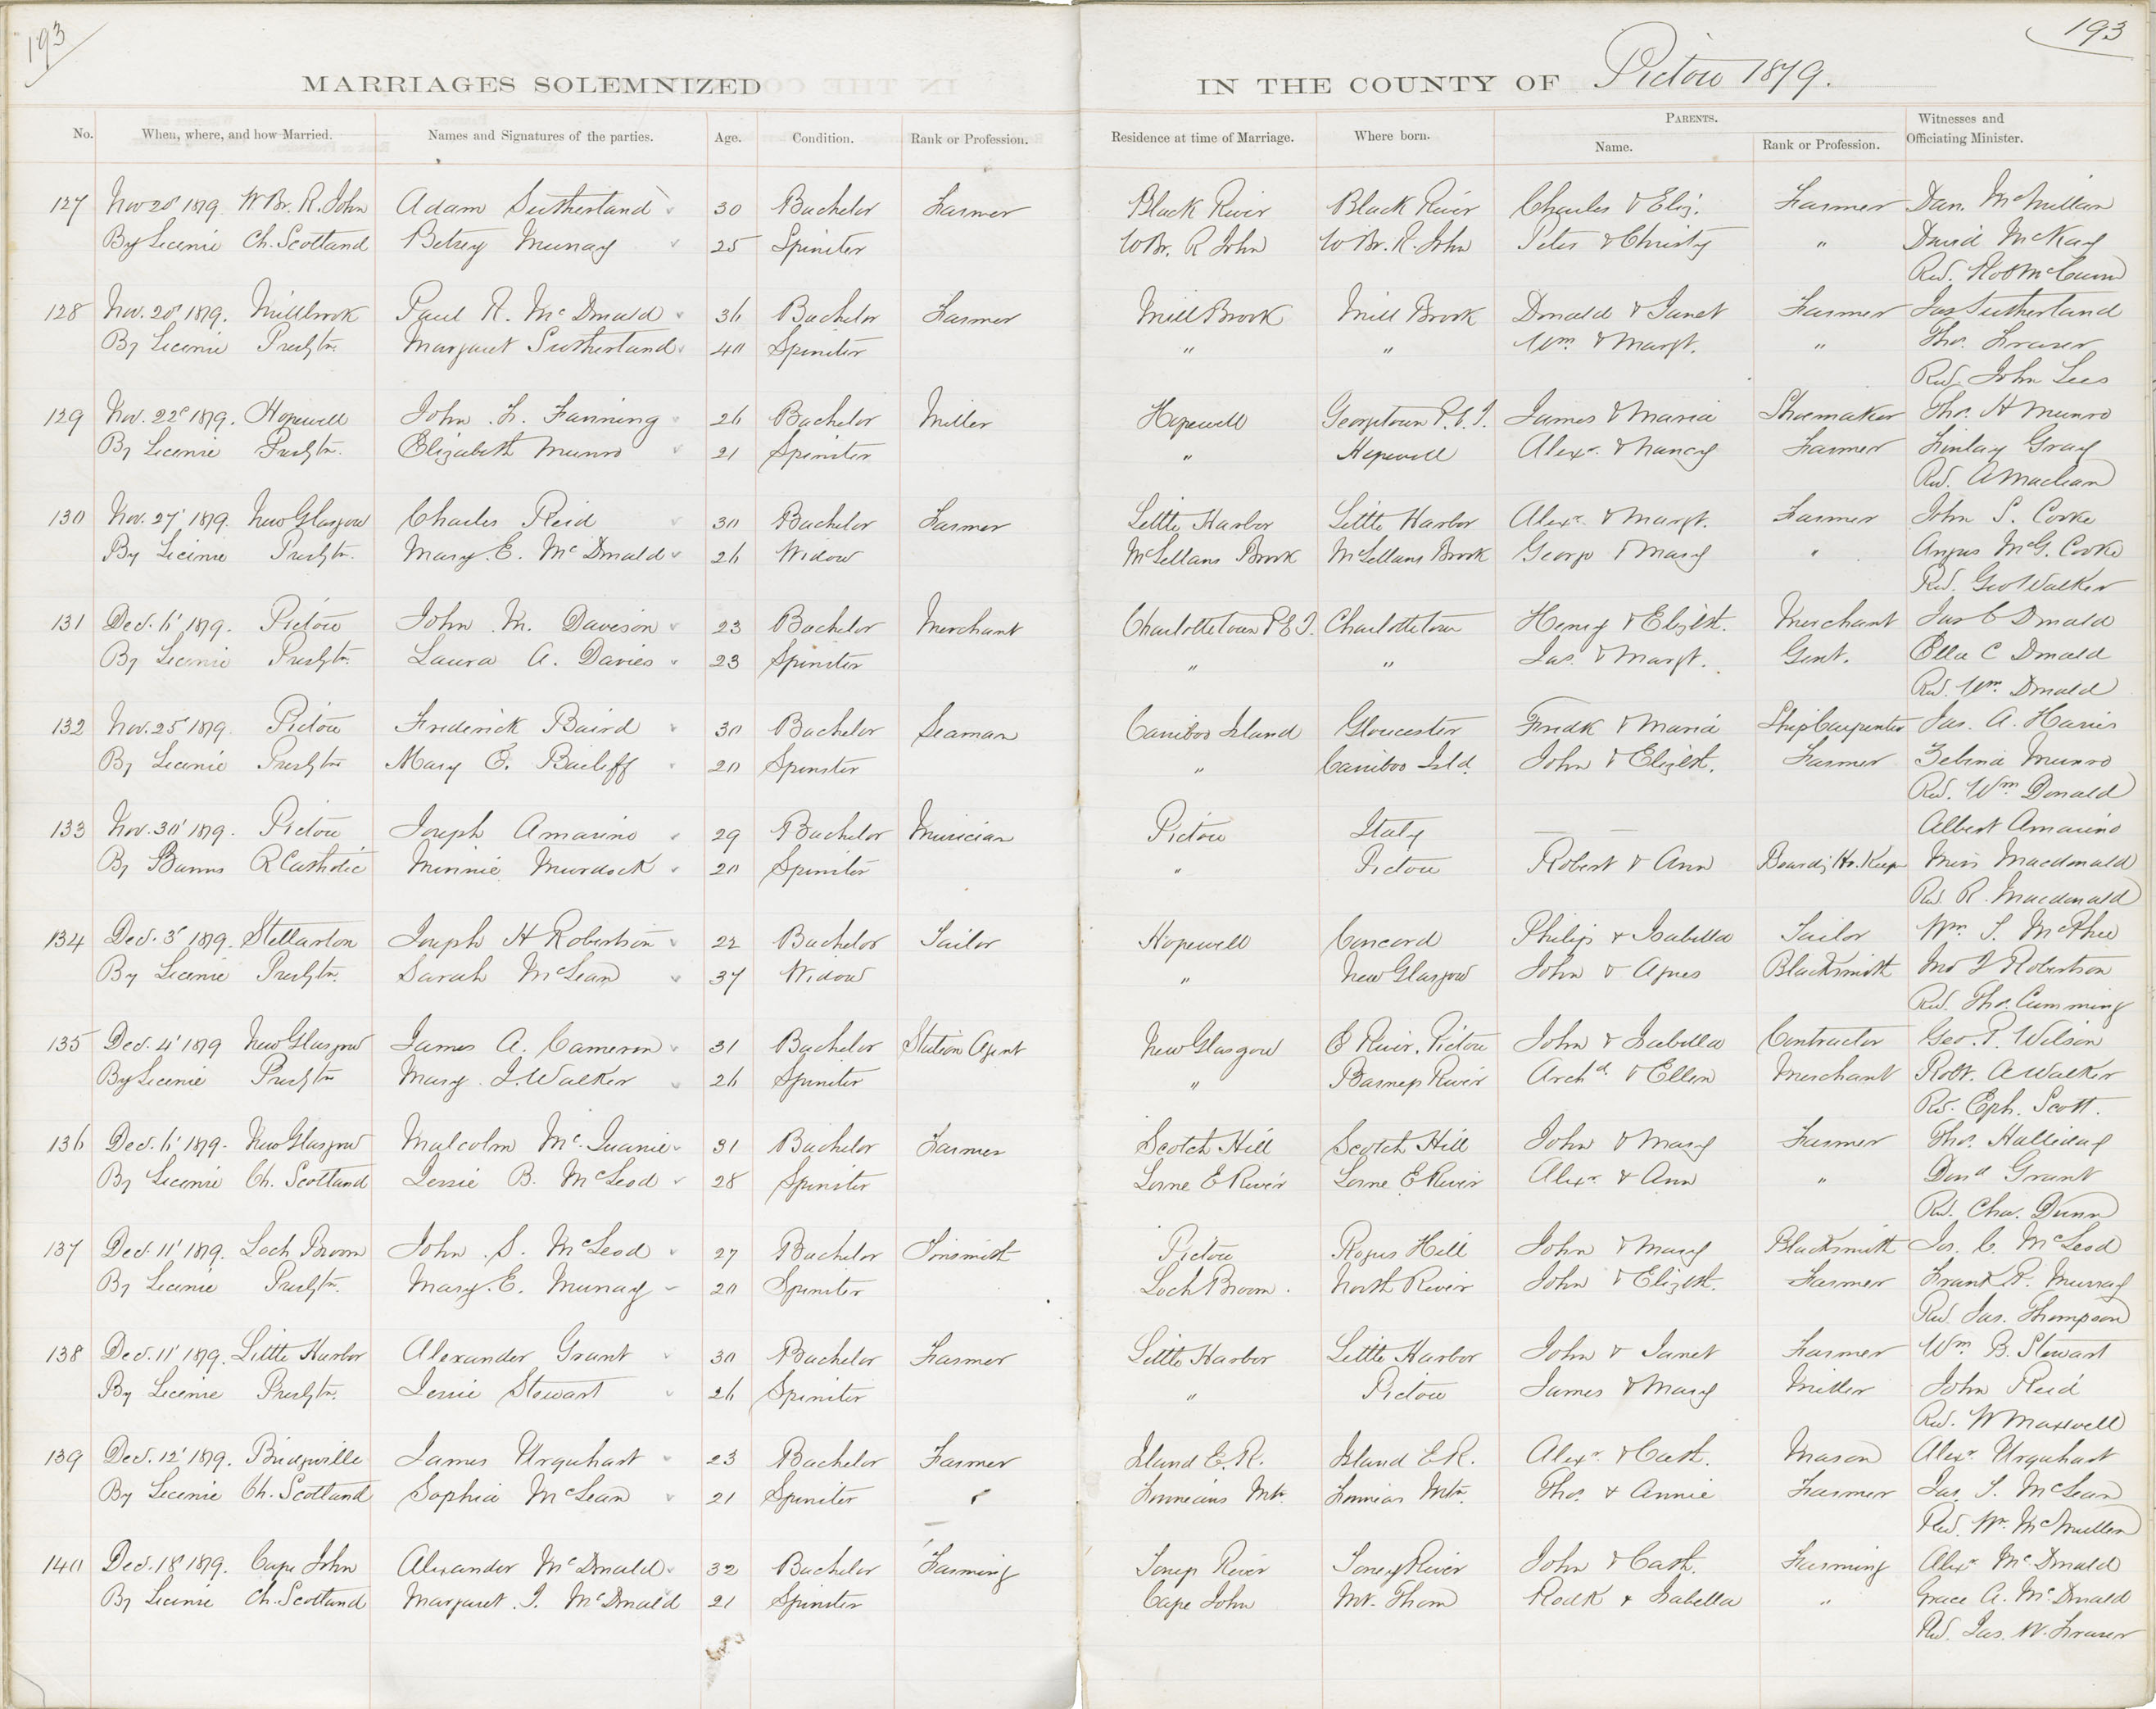 193
193
MARRIAGES SOLEMNIZED IN THE COUNTY OF Pictou 1879.
No. When, where, and how Married. Names and Signatures of the parties. Age. Condition. Rank or Profession. Residence at time of Marriage. Where born. PARENTS. Name. Rank or Profession. Witnesses and Officiating Minister.
127 Nov 20 1879 W. Br. R. John Adam Sutherland 30 Bachelor Farmer Black River Black River Charles & Eliz. Farmer Dan. McMillan
By License Ch. Scotland Betsey Murray 25 Spinster W Br. R John W Br. R. John Peter & Christy " David McKay
Rev. Robt McCunn
128 Nov. 20 1879. Millbrook Paul R. McDonald 36 Bachelor Farmer Mill Brook Mill Brook Donald & Janet Farmer Jas Sutherland
By License Presbtn. Margaret Sutherland 40 Spinster " " Wm & Margt. " Thos. Fraser
Rev. John Lees
129 Nov. 22d 1879. Hopewell John F. Fanning 26 Bachelor Miller Hopewell Georgetown P.E.I. James & Maria Shoemaker Thos. H Munro
By License Presbtn. Elizabeth Munro 21 Spinster " Hopewell Alexr. & Nancy Farmer Finlay Gray
Rev. A Maclean
130 Nov. 27 1879. New Glasgow Charles Reid 30 Bachelor Farmer Little Harbor Little Harbor Alexr. & Margt. Farmer John S. Cooke
By License Presbtn. Mary E. McDonald 26 Widow McLellans Brook McLellans Brook George & Mary " Angus McG. Cooke
Rev. Geo Walker
131 Dec. 6 1879. Pictou John M. Davison 23 Bachelor Merchant Charlottetown P.E.I. Charlottetown Henry & Elizbt. Merchant Jas C Donald
By License Presbtn. Laura A. Davies 23 Spinster " " Jas. & Margt. Gent. Ella C Donald
Rev. Wm. Donald
132 Nov. 25 1879 Pictou Frederick Baird 30 Bachelor Seaman Cariboo Island Gloucester Fredk & Maria Ship Carpenter Jas. A. Harris
By License Presbtn Mary E. Bailiff 20 Spinster " Cariboo Isld. John & Elizbt. Farmer Zebina Munro
Rev. Wm Donald
133 Nov. 30 1879. Pictou Joseph Amarino 29 Bachelor Musician Pictou Italy Albert Amarino
By Banns R Catholic Minnie Murdock 20 Spinster " Pictou Robert & Ann Boardg Ho. Keepr Miss Macdonald
Rev. R. Macdonald
134 Dec. 3 1879. Stellarton Joseph H Robertson 22 Bachelor Tailor Hopewell Concord Philip & Isabella Tailor Wm. S. McPhee
By License Presbtn. Sarah McLean 37 Widow " New Glasgow John & Agnes Blacksmith Jno J Robertson
Rev. Thos. Cumming
135 Dec. 4 1879 New Glasgow James A. Cameron 31 Bachelor Station Agent New Glasgow E River, Pictou John & Isabella Contractor Geo. P. Wilson
By License Presbtn Mary J. Walker 26 Spinster " Barneys River Archd. & Ellen Merchant Robt. A Walker
Rev. Eph. Scott.
136 Dec. 6 1879. New Glasgow Malcolm McQuarrie 31 Bachelor Farmer Scotch Hill Scotch Hill John & Mary Farmer Thos. Halliday
By License Ch. Scotland Jessie B. McLeod 28 Spinster Lorne E River Lorne E River Alexr & Ann " Dond Grant
Rev. Chas. Dunn
137 Dec. 11 1879. Loch Broom John S. McLeod 27 Bachelor Tinsmith Pictou Rogers Hill John & Mary Blacksmith Jos. C. McLeod
By License Presbtn. Mary E. Murray 20 Spinster Loch Broom. North River John & Elizbt. Farmer Frank R. Murray
Rev. Jas. Thompson
138 Dec. 11 1879. Little Harbor Alexander Grant 30 Bachelor Farmer Little Harbor Little Harbor John & Janet Farmer Wm B. Stewart
By License Presbtn. Jessie Stewart 26 Spinster " Pictou James & Mary Miller John Reid
Rev. W Maxwell
139 Dec. 12 1879. Bridgeville James Urquhart 23 Bachelor Farmer Island E.R. Island E.R. Alexr & Cath. Mason Alexr. Urquhart
By License Ch. Scotland Sophia McLean 21 Spinster " Mtn. Mtn. Thos. & Annie Farmer Jas. S. McLean
Rev. Wm. McMillan
140 Dec. 18 1879. Cape John Alexander McDonald 32 Bachelor Farming Toney River Toney River John & Cath. Farming Alexr. McDonald
By License Ch. Scotland Margaret J. McDonald 21 Spinster Cape John Mt. Thom Rodk & Isabella " Grace A. McDonald
Rev. Jas. W. Fraser